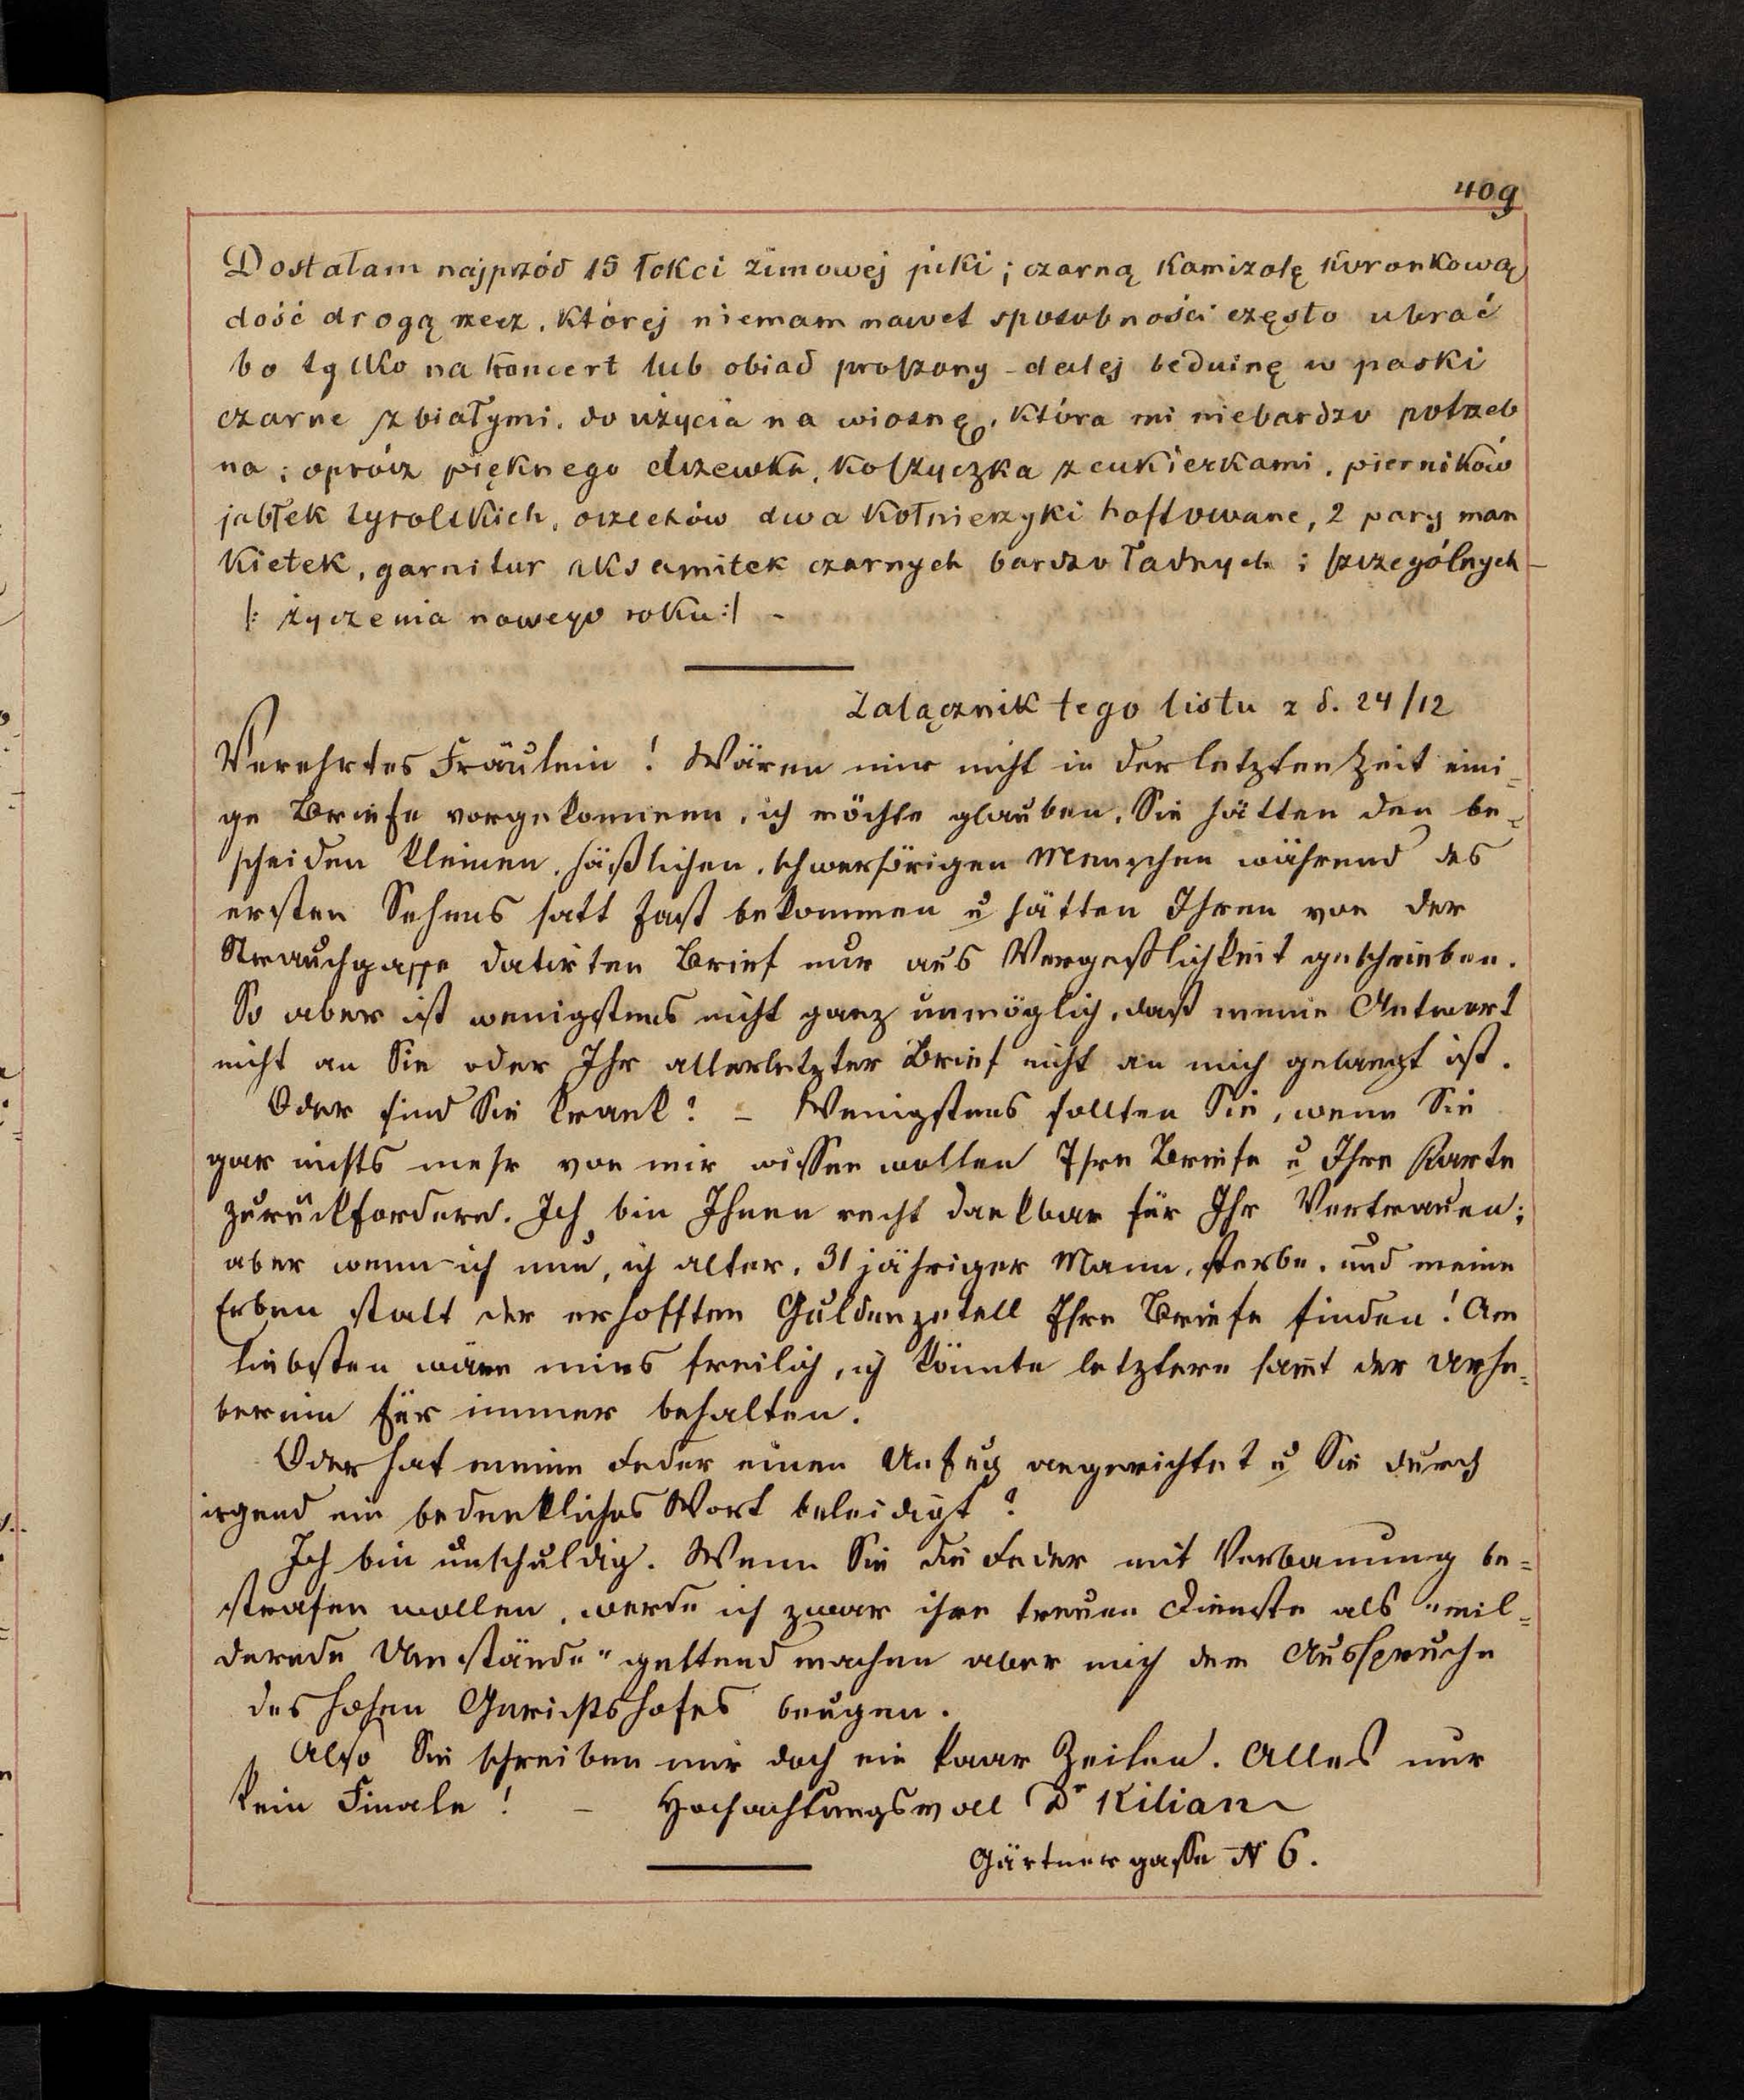 409
Dostałam najprzód 15 łokci zimowej piki; czarną kamizolę koronkową
dość drogą rzecz, której niemam nawet sposobności często ubrać
bo tylko na koncert lub obiad proszony - dalej beduinę w paski
czarne z białymi, do użycia na wiosnę, która mi niebardzo potrzeb
na; oprócz pięknego drzewka, koszyczka z cukierkami, pierników
jabłek tyrolskich, orzechów dwa kołnierzyki haftowane, 2 pary man
kietek, garnitur aksamitek czarnych bardzo ładnych i szczególnych -
|: życzenia nowego roku :| -
Załącznik tego listu z d. 24/12
Verehrtes Fräulein! Wären mir nicht in der letzten Zeit eini-
ge Briefe vorgekommen, ich möchte glauben, Sie hätten den be-
scheiden kleinen, häßlichen, schwerhörigen Menschen während des
ersten Sehens satt fast bekommen u hätten Ihren von der
Strauchgasse datirten Brief nur aus Vergeßlichkeit geschrieben.
So aber ist wenigstens nicht ganz unmöglich, daß meine Antwort
nicht an Sie oder Ihr allerletzter Brief nicht an mich gelangt ist.
Oder sind Sie krank? - Wenigstens sollten Sie, wenn Sie
gar nichts mehr von mir wissen wollen Ihre Briefe u Ihre Karte
zurückfordern. Ich bin Ihnen recht dankbar für Ihr Vertrauen;
aber wenn ich nun, ich alter, 31 jähriger Mann, sterbe, und meine
Erben statt der erhofften Guldenzetell Ihre Briefe finden! Am
liebsten wäre mirs freilich, ich könnte letztere samt der Urhe-
berin für immer behalten.
Oder hat meine Feder einen Unfug angerichtet u Sie durch
irgend ein bedenkliches Wort beleidigt?
Ich bin unschuldig. Wenn Sie die Feder mit Verbannung be-
strafen wollen, werde ich zwar ihre treuen Dienste als "mil-
dernde Umstände" geltend machen aber mich dem Ausspruche
des hohen Gerichtshofes beugen.
Also Sie schreiben mir doch ein paar Zeilen. Alles nur
kein Finale! - Hochachtungsvoll Dr Kilian
Gärtnergasse N 6.